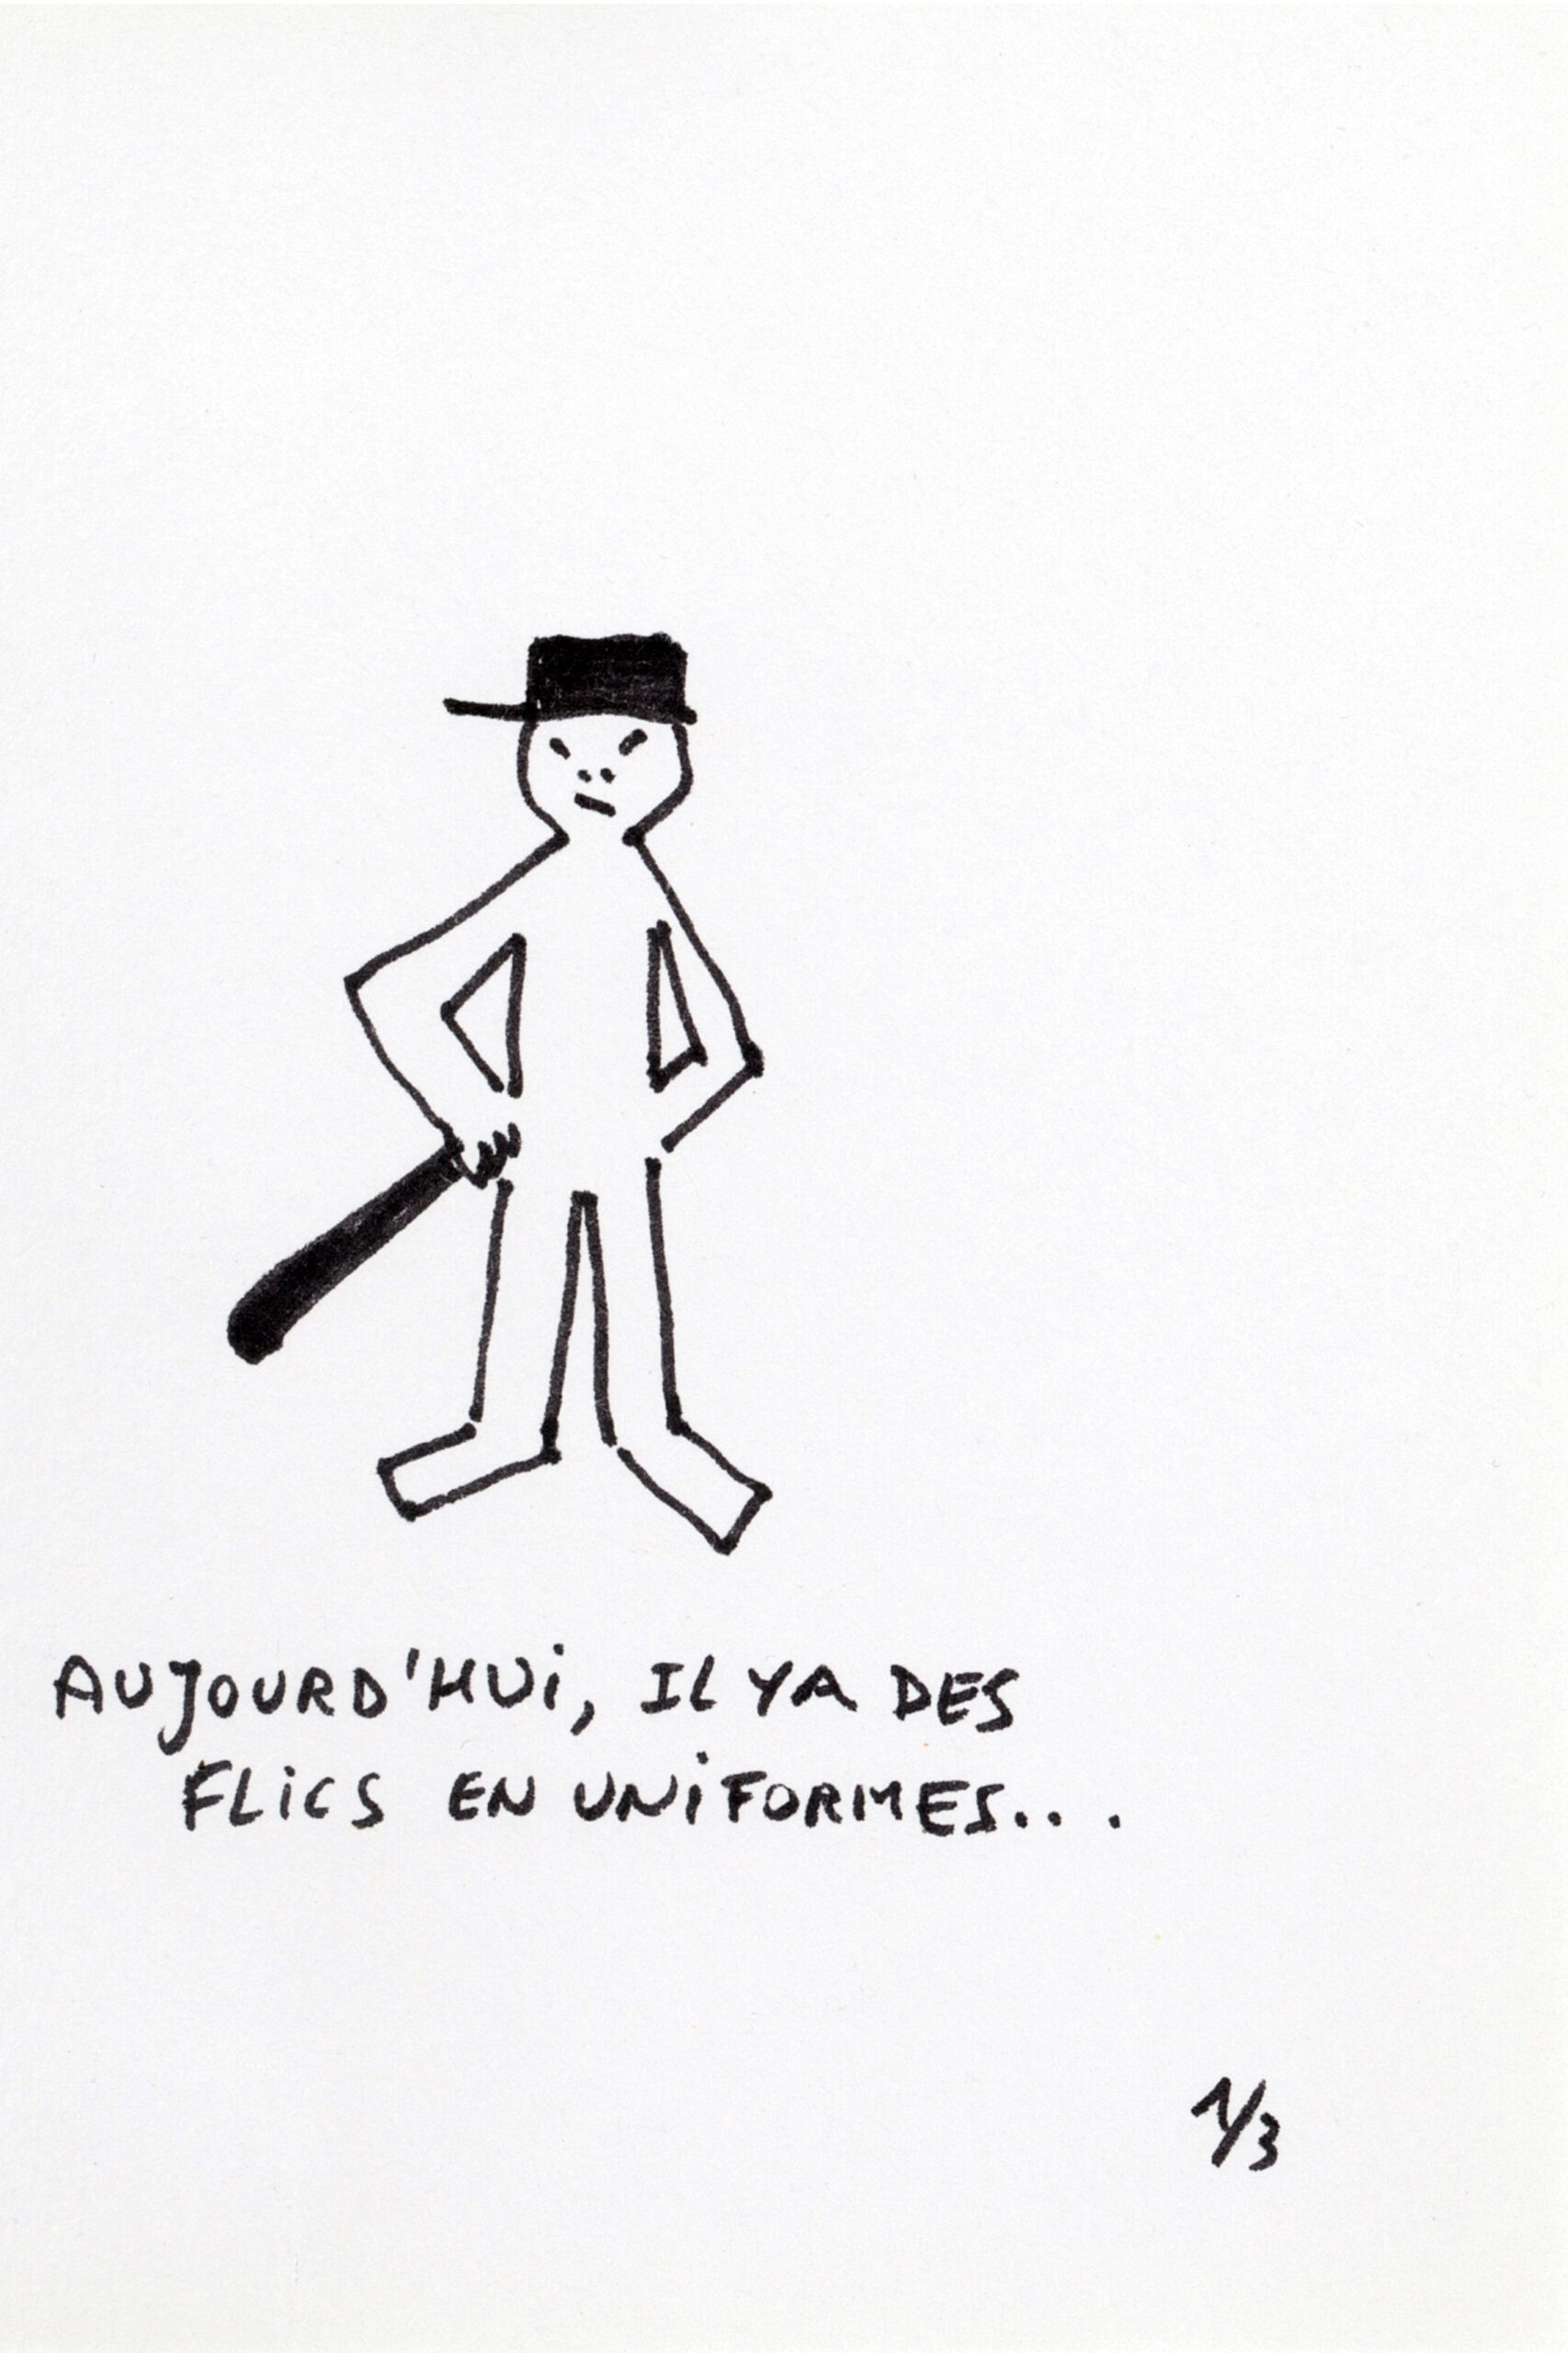 AUJOURD'HUi, IL YA DES
FLiCS EN UNiFORMES...
1/3